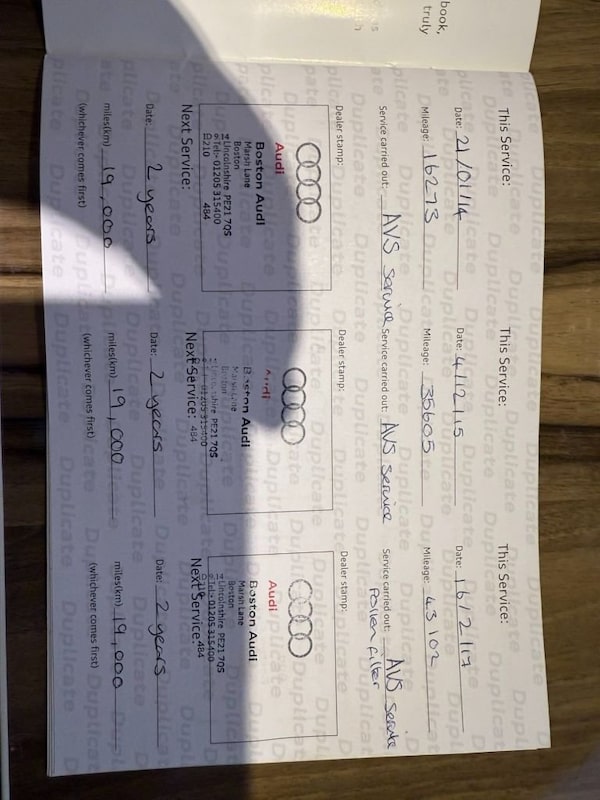 book,
truly
This Service:
Date: 21/01/14
Mileage: 16273
Service carried out: AVS Service
Dealer stamp:
Audi
Boston Audi
Marsh Lane
Boston
Lincolnshire PE21 7QS
Tel:- 01205 315400
210 484
Next Service:
Date: 2 years
miles(km) 19,000
(whichever comes first)
This Service:
Date: 4/12/15
Mileage: 35605
Service carried out: AVS Service
Dealer stamp:
Audi
Boston Audi
Marsh Lane
Boston
Lincolnshire PE21 7QS
Tel:- 01205 315400
484
Next Service:
Date: 2 years
miles(km) 19,000
(whichever comes first)
This Service:
Date: 16/2/17
Mileage: 43102
Service carried out: AVS Service
Pollen filter
Dealer stamp:
Audi
Boston Audi
Marsh Lane
Boston
Lincolnshire PE21 7QS
Tel:- 01205 315400
484
Next Service:
Date: 2 years
miles(km) 19,000
(whichever comes first)
Duplicate